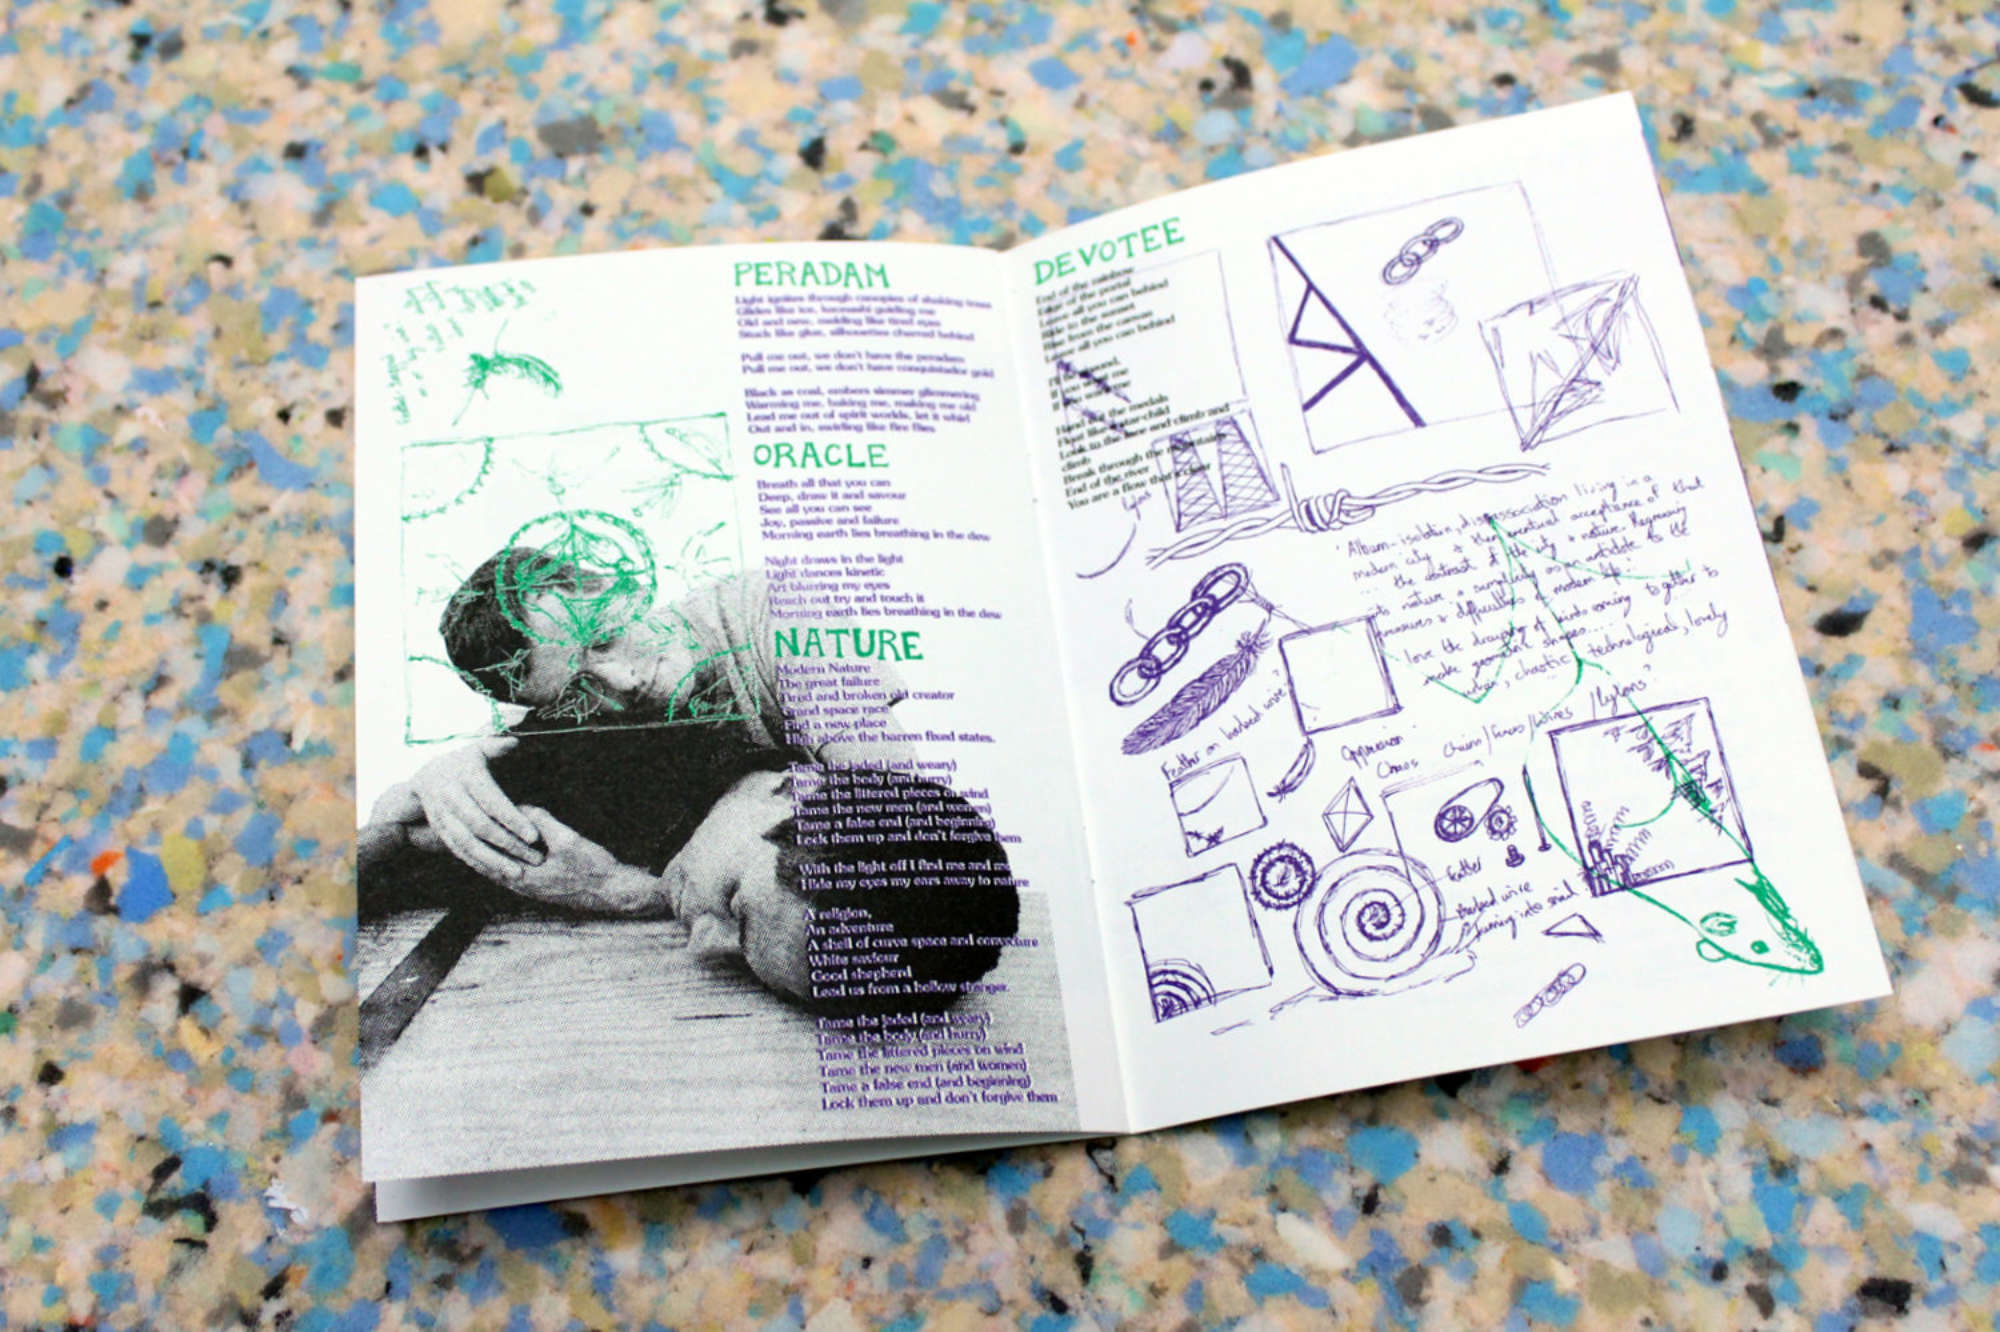 PERADAM
Light ignites through canopies of shaking trees
Glides like ice, kaonashi guiding me
Old and new, melding like tired eyes
Stuck like glue, silhouettes charred behind
Pull me out, we don't have the peradam
Pull me out, we don't have conquistador gold
Black as coal, embers simmer glimmering
Warming me, baking me, making me old
Lead me out of spirit worlds, let it whirl
Out and in, swirling like fire flies
ORACLE
Breath all that you can
Deep, draw it and savour
See all you can see
Joy, passive and failure
Morning earth lies breathing in the dew
Night draws in the light
Light dances kinetic
Art blurring my eyes
Reach out try and touch it
Morning earth lies breathing in the dew
NATURE
Modern Nature
The great failure
Tired and broken old creator
Grand space race
Find a new place
High above the barren fixed states.
Tame the Jaded (and weary)
Tame the body (and hurry)
Tame the littered pieces on wind
Tame the new men (and women)
Tame a false end (and beginning)
Lock them up and don't forgive them
With the light off I find me and me
Hide my eyes my ears away to nature
A religion,
An adventure
A shell of curve space and conjecture
White saviour
Good shepherd
Lead us from a hollow stranger.
Tame the Jaded (and weary)
Tame the body (and hurry)
Tame the littered pieces on wind
Tame the new men (and women)
Tame a false end (and beginning)
Lock them up and don't forgive them
DEVOTEE
End of the rainbow
Edge of the portal
Leave all you can behind
Ride to the sunset
Rise from the canvas
Leave all you can behind
I'll be around,
If you want me
If you want me
Hand out the medals
Float like a star-child
Look to the face and climb and
climb
Break through the mountains
End of the river
You are a flow that's clear
Pylons
'Album - isolation, disassociation living in a
modern city & then eventual acceptance of that
... the abstract of the city & nature. Regressing
into nature & simplicity as an antidote to the
pressures & difficulties of modern life.'
love the drawing of points coming together to
make geometric shapes....
urban, chaotic, technological, lovely
Feather on barbed wire?
Oppression
Chaos
Chains/Fences/Wires/Pylons?
feather
Barbed wire
turning into snail